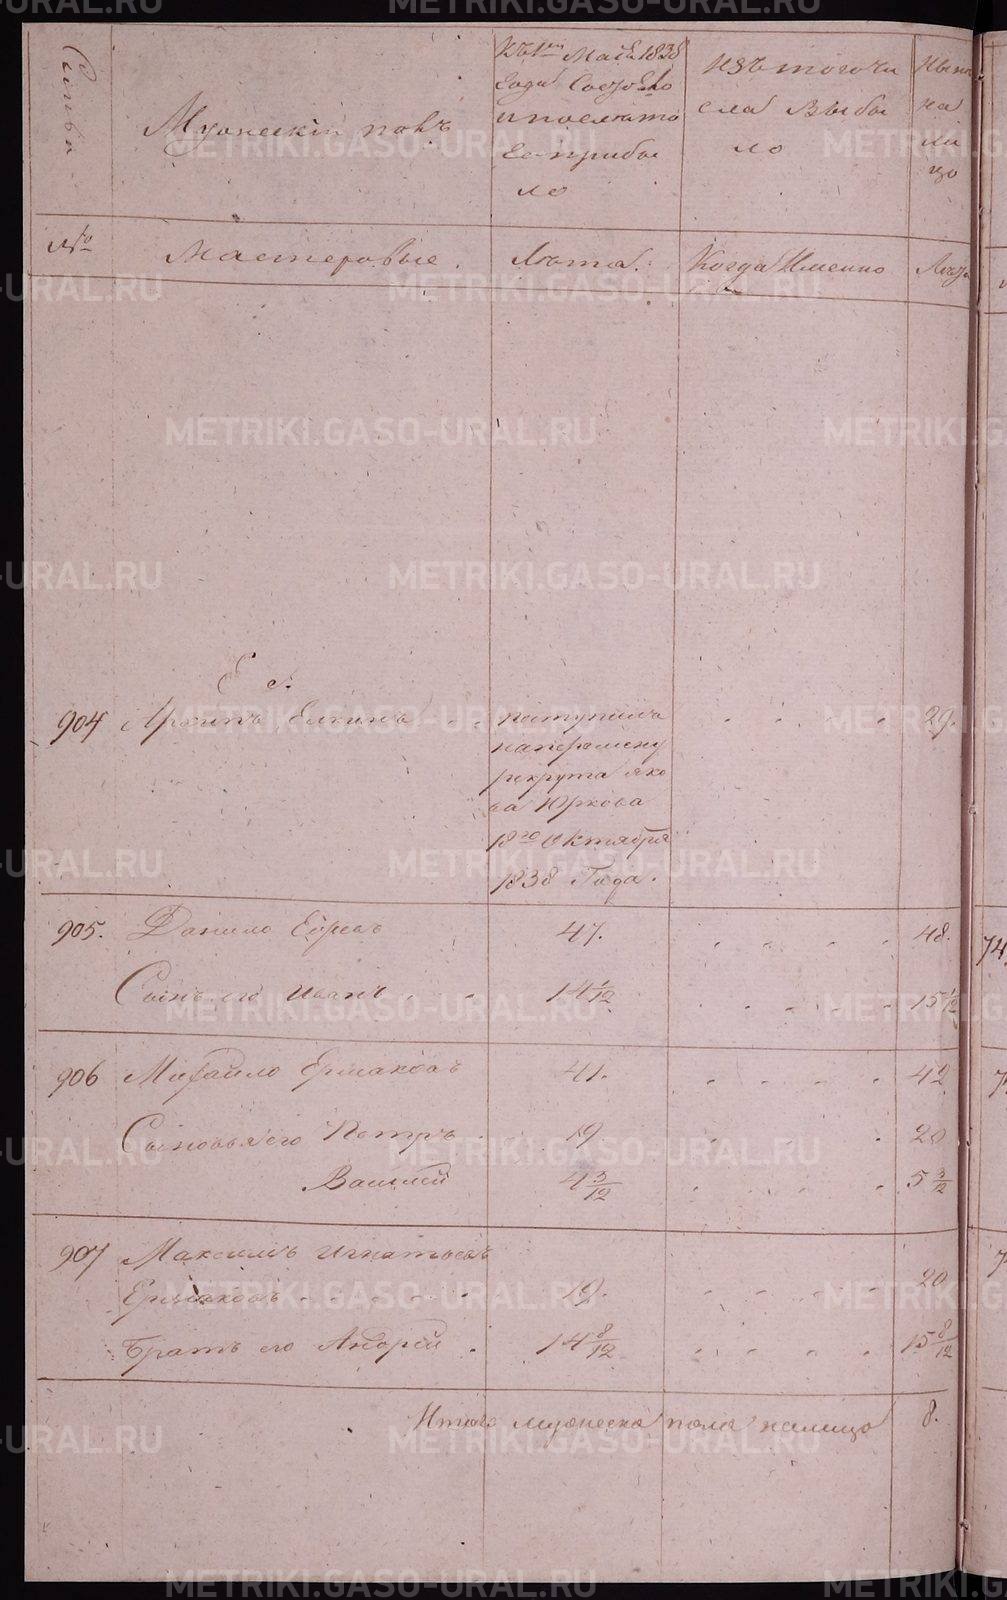 Семьи
Мужескiй полъ
Къ 1му Маiя 1838
Года Состояло
и после того
Ея прибы
ло
Изъ того чи
сла Выбы
ло
Ныне
на
ли
цо
№
Мастеровые.
Лета.
Когда Именно
Лета
Е е.
904 Архипъ Елкинъ - - поступилъ 29.
на перемену
рекрута Яко
ва Юркова
18го Октября
1838 Года.
905. Данило Ефревъ 47. 48.
Сынъ его Иванъ - - 14 1/12 15 1/12
906 Михайло Ермаковъ 41. 42
Сыновья его Петръ 19 20
Василiй 4 3/12 5 3/12
907 Максимъ Игнатьевъ
Ермаковъ - - - - 19. 20
Братъ его Андрей - 14 8/12 15 8/12
Итого мужеска пола налицо 8.
METRIKI.GASO-URAL.RU